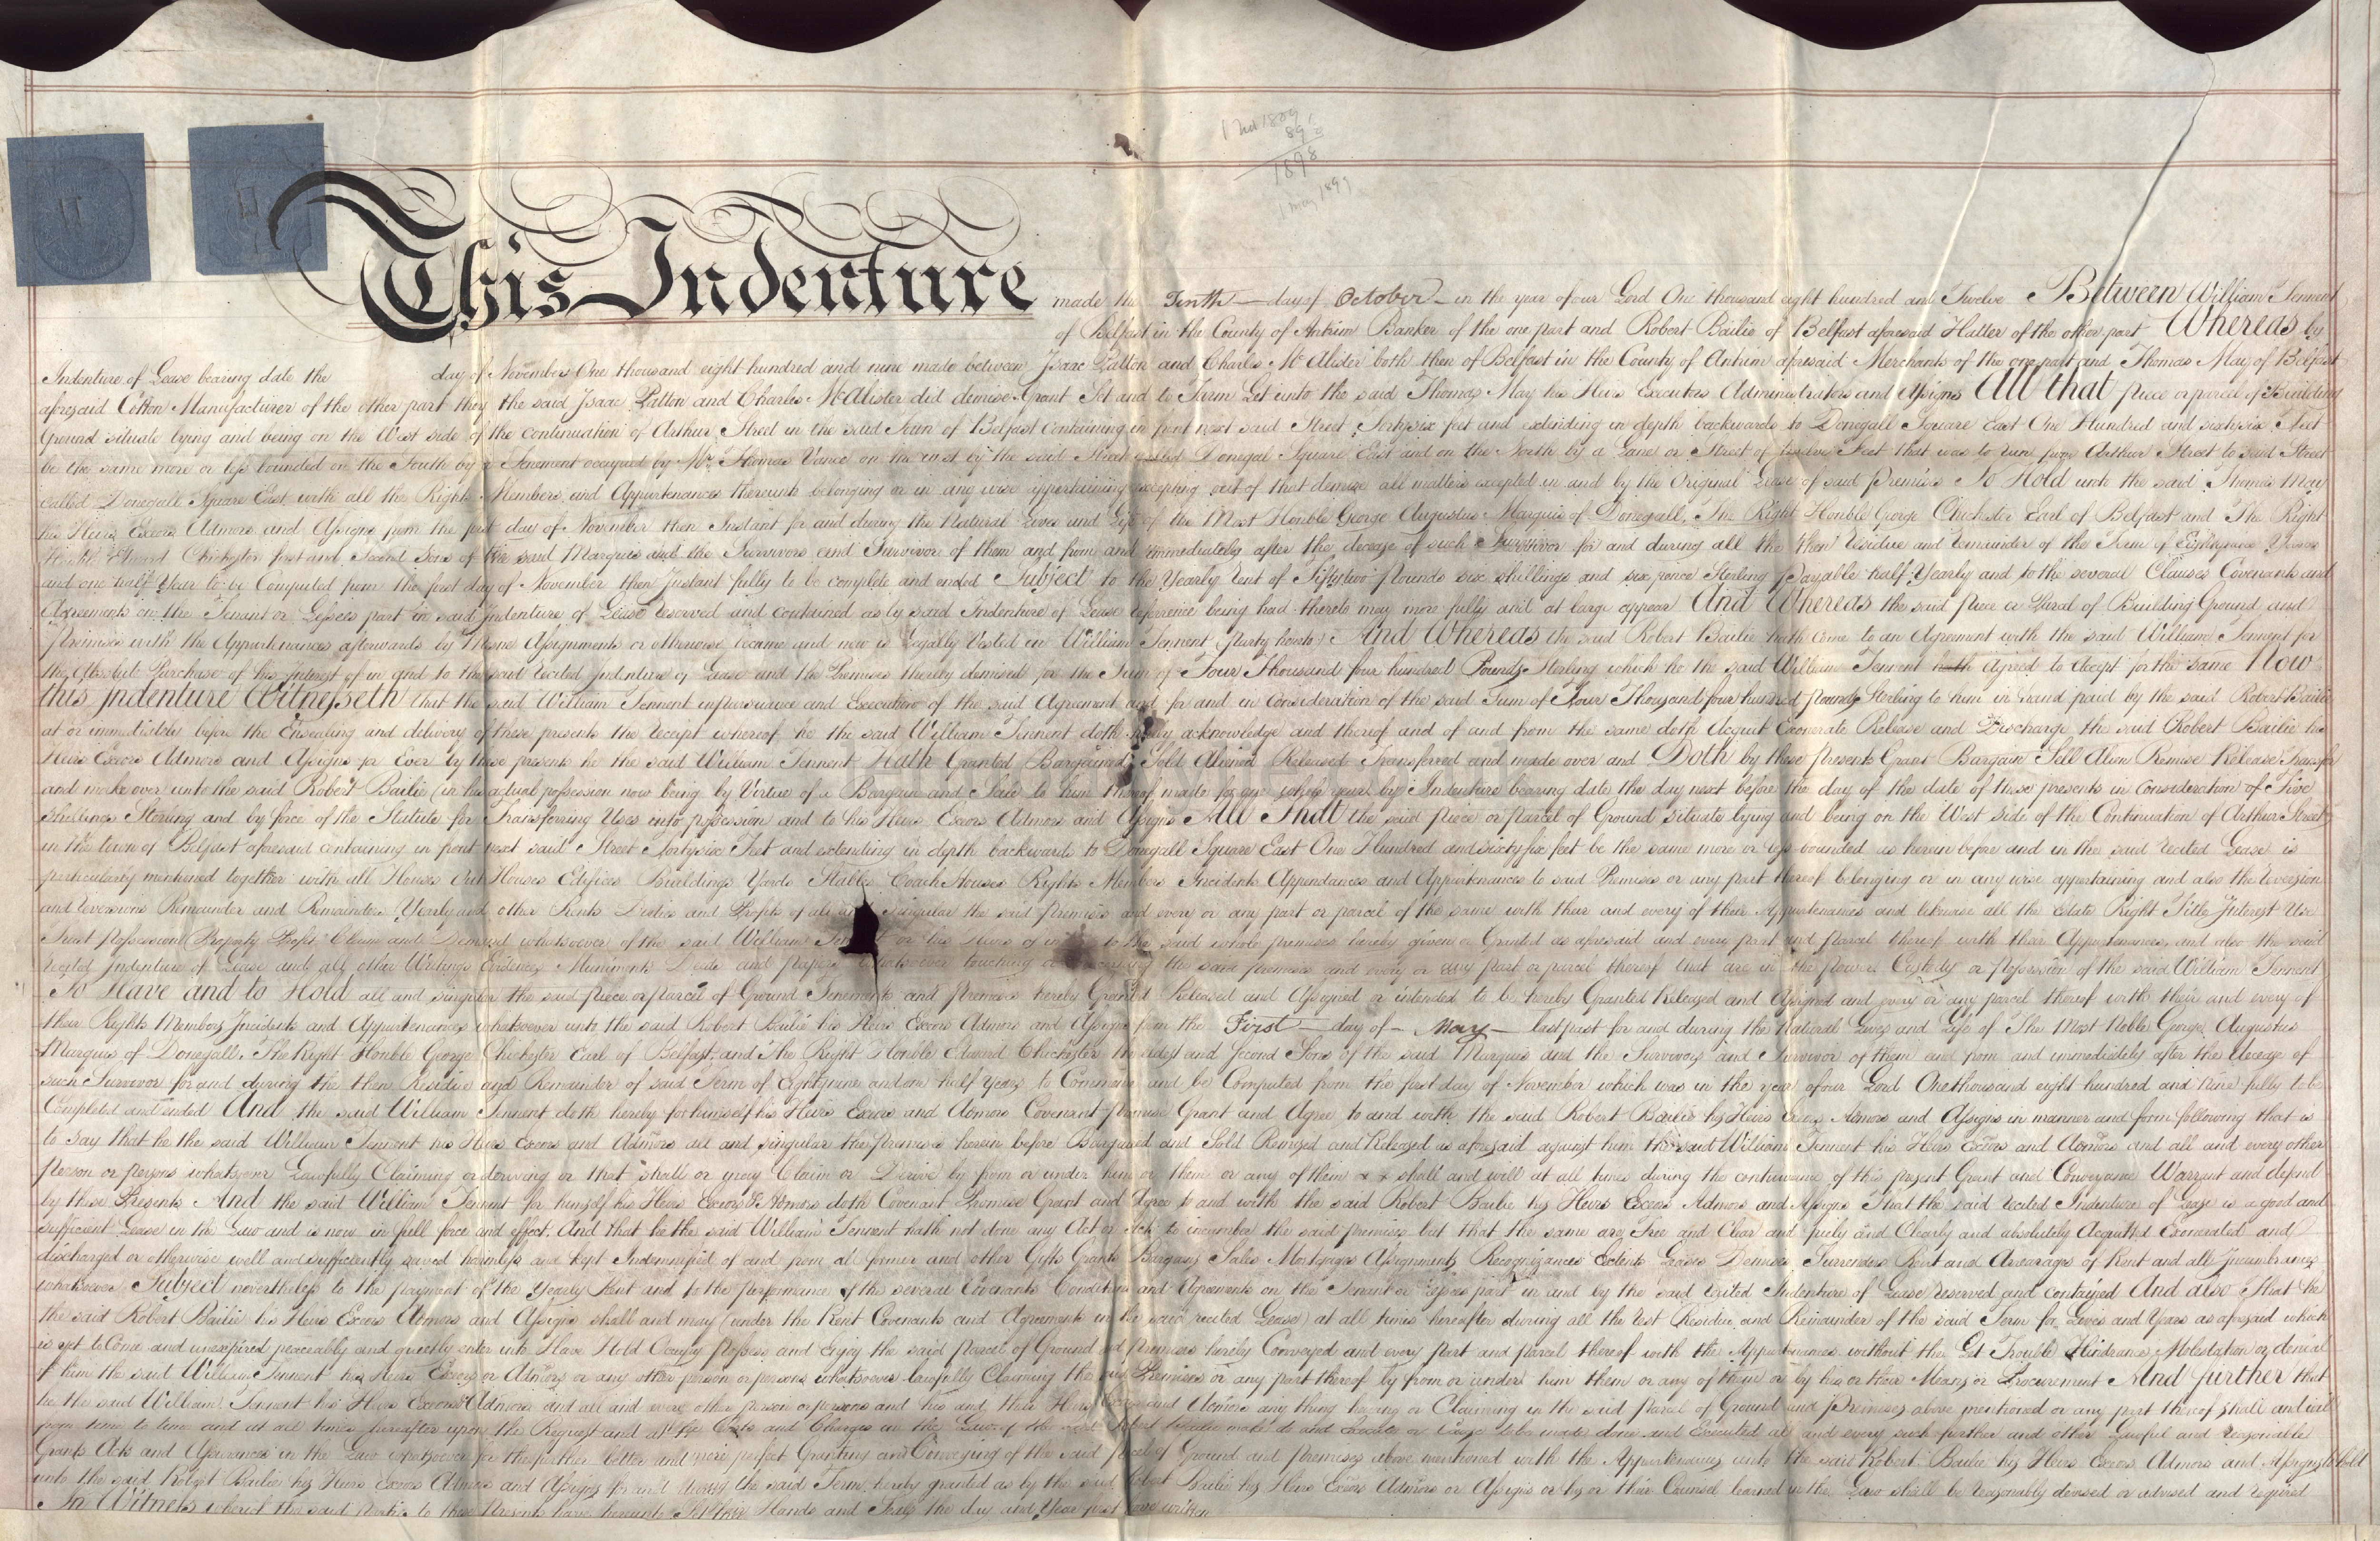 1 Nov 1809
89
1898
1 May 1899
This Indenture made the Tenth day of October in the year of our Lord One thousand eight hundred and Twelve Between William Tennent
of Belfast in the County of Antrim Banker of the one part and Robert Bailie of Belfast aforesaid Hatter of the other part Whereas by
Indenture of Lease bearing date the day of November One thousand eight hundred and nine made between Isaac Patton and Charles McAlister both then of Belfast in the County of Antrim aforesaid Merchants of the one part and Thomas May of Belfast
aforesaid Cotton Manufacturer of the other part they the said Isaac Patton and Charles McAlister did demise Grant Set and to Farm Let unto the said Thomas May his Heirs Executors Administrators and Assigns All that piece or parcel of Building
Ground situate lying and being on the West side of the continuation of Arthur Street in the said Town of Belfast containing in front next said Street Fortysix feet and extending in depth backwards to Donegall Square East One Hundred and sixtysix Feet
be the same more or less bounded on the South by a Tenement occupied by Mr. Thomas Vance on the west by the said Street called Donegal Square East and on the North by a Lane or Street of twelve Feet that was to run from Arthur Street to said Street
called Donegall Square East with all the Rights Members and Appurtenances thereunto belonging or in any wise appertaining excepting out of that demise all matters excepted in and by the Original Lease of said Premises To Hold unto the said Thomas May
his Heirs Excors Admors and Assigns from the first day of November then Instant for and during the Natural Lives and Life of the Most Honble George Augustus Marquis of Donegall, The Right Honble George Chichester Earl of Belfast and The Right
Honble Edward Chichester first and Second Sons of the said Marquis and the Survivors and Survivor of them and from and immediately after the decease of such Survivor for and during all the then Residue and remainder of the Term of Eightynine Years
and one half Year to be Computed from the first day of November then Instant fully to be complete and ended Subject to the Yearly Rent of Fiftytwo Pounds six shillings and six pence Sterling Payable half Yearly and to the several Clauses Covenants and
Agreements on the Tenant or Lessees part in said Indenture of Lease reserved and contained as by said Indenture of Lease reference being had thereto may more fully and at large appear And Whereas the said piece or Parcel of Building Ground and
Premises with the Appurtenances afterwards by Mesne Assignments or otherwise became and now is Legally Vested in William Tennent party hereto And Whereas the said Robert Bailie hath come to an Agreement with the said William Tennent for
the Absolute Purchase of his Interest of in and to the said recited Indenture of Lease and the Premises thereby demised for the Sum of Four Thousand four hundred Pounds Sterling which he the said William Tennent hath Agreed to Accept for the same Now
this Indenture Witnesseth that the said William Tennent in pursuance and Execution of the said Agreement and for and in Consideration of the said Sum of Four Thousand four hundred pounds Sterling to him in hand paid by the said Robert Bailie
at or immediately before the Ensealing and delivery of these presents the Receipt whereof he the said William Tennent doth hereby acknowledge and thereof and of and from the same doth Acquit Exonerate Release and Discharge the said Robert Bailie his
Heirs Excors Admors and Assigns for Ever by these presents he the said William Tennent Hath Granted Bargained Sold Aliened Released Transferred and made over and Doth by these Presents Grant Bargain Sell Alien Remise Release Transfer
and make over unto the said Robert Bailie (in his actual possession now being by Virtue of a Bargain and Sale to him thereof made for one whole year by Indenture bearing date the day next before the day of the date of these presents in Consideration of Five
Shillings Sterling and by force of the Statute for Transferring Uses into possession and to his Heirs Excors Admors and Assigns All That the said piece or parcel of Ground situate lying and being on the West side of the Continuation of Arthur Street
in the town of Belfast aforesaid containing in front next said Street Fortysix Feet and extending in depth backwards to Donegall Square East One Hundred and sixty six feet be the same more or less bounded as herein before and in the said recited Lease is
particularly mentioned together with all Houses Out Houses Edifices Buildings Yards Stables Coach Houses Rights Members Incidents Appendances and Appurtenances to said Premises or any part thereof belonging or in any wise appertaining and also the Reversion
and Reversions Remainder and Remainders Yearly and other Rents Duties and Profits of all and singular the said premises and every or any part or parcel of the same with their and every of their Appurtenances and likewise all the Estate Right Title Interest Use
Trust Possession Property Profit Claim and Demand whatsoever of the said William or his Heirs of in to the said whole premises hereby given or Granted as aforesaid and every part and parcel thereof with their Appurtenances and also the said
recited Indenture of Lease and all other Writings Evidences Muniments Deeds and papers whatsoever touching or the same premises and every or any part or parcel thereof that are in the power Custody or possession of the said William Tennent
To Have and to Hold all and singular the said piece or parcel of Ground Tenements and Premises hereby Granted Released and Assigned or intended to be hereby Granted Released and Assigned and every or any parcel thereof with their and every of
their Rights Members Incidents and Appurtenances whatsoever unto the said Robert Bailie his Heirs Excors Admors and Assigns from the First day of May last past for and during the Natural Lives and Life of The Most Noble George Augustus
Marquis of Donegall, The Right Honble George Chichester Earl of Belfast, and The Right Honble Edward Chichester the eldest and Second Sons of the said Marquis and the Survivors and Survivor of them and from and immediately after the decease of
such Survivor for and during the then Residue and Remainder of said Term of Eightynine and one half Years to Commence and be Computed from the first day of November which was in the year of our Lord One thousand eight hundred and Nine fully to be
Completed and ended And the said William Tennent doth hereby for himself his Heirs Excors and Admors Covenant promise Grant and Agree to and with the said Robert Bailie his Heirs Excors Admors and Assigns in manner and form following that is
to say that he the said William Tennent his Heirs Excors and Admors all and singular the premises herein before Bargained and Sold Remised and Released as aforesaid against him the said William Tennent his Heirs Excors and Admors and all and every other
person or persons whatsoever Lawfully Claiming or deriving or that shall or may Claim or Derive by from or under him or them or any of them x x shall and will at all times during the continuance of this present Grant and Conveyance Warrant and defend
by these Presents And the said William Tennent for himself his Heirs Excors & Admors doth Covenant Promise Grant and Agree to and with the said Robert Bailie his Heirs Excors Admors and Assigns That the said recited Indenture of Lease is a good and
sufficient Lease in the Law and is now in full force and effect. And that he the said William Tennent hath not done any Act or Acts to incumber the said premises but that the same are Free and Clear and freely and Clearly and absolutely Acquitted Exonerated and
discharged or otherwise well and sufficiently saved harmless and kept Indemnified of and from all former and other Gifts Grants Bargains Sales Mortgages Assignments Recognizances Extents Leases Demises Surrenders Rent and Arrearages of Rent and all Incumbrances
whatsoever Subject nevertheless to the payment of the Yearly Rent and to the performance of the several Covenants Conditions and Agreements on the Tenant or Lessees part in and by the said recited Indenture of Lease reserved and contained And also That he
the said Robert Bailie his Heirs Excors Admors and Assigns shall and may (under the Rent Covenants and Agreements in the said recited Lease) at all times hereafter during all the rest Residue and Remainder of the said Term for Lives and Years as aforesaid which
is yet to Come and unexpired peaceably and quietly enter into Have Hold Occupy Possess and Enjoy the said Parcel of Ground and Premises hereby Conveyed and every Part and parcel thereof with the Appurtenances without the Let Trouble Hindrance Molestation or denial
of him the said William Tennent his Heirs Excors or Admors or any other person or persons whatsoever lawfully Claiming the said Premises or any part thereof by from or under him them or any of them or by his or their Means or Procurement And further that
he the said William Tennent his Heirs Excors & Admors and all and every other person or persons and his and their Heirs Excors and Admors any thing having or Claiming in the said Parcel of Ground and Premises above mentioned or any part thereof shall and will
from time to time and at all times hereafter upon the Request and at the Costs and Charges in the Law of the said Robert Bailie make do and Execute or Cause to be made done and Executed all and every such further and other Lawful and reasonable
Grants Acts and Assurances in the Law whatsoever for the further better and more perfect Granting and Conveying of the said parcel of Ground and premises above mentioned with the Appurtenances unto the said Robert Bailie his Heirs Excors Admors and Assigns to hold
unto the said Robert Bailie his Heirs Excors Admors and Assigns for and during the said Term hereby granted as by the said Robert Bailie his Heirs Excors Admors or Assigns or his or their Counsel learned in the Law shall be reasonably devised or advised and required
In Witness whereof the said Parties to these Presents have hereunto Set their Hands and Seals the day and Year first above written